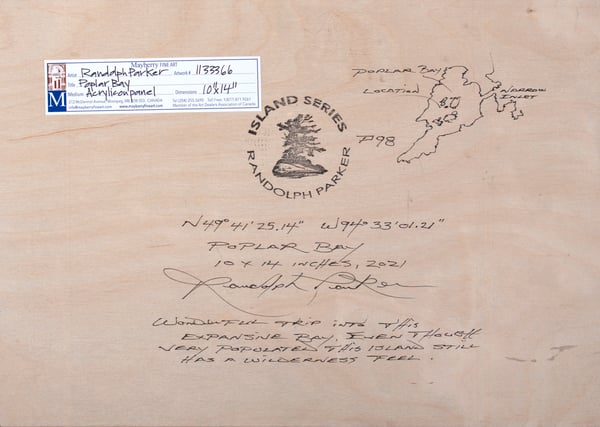 Mayberry FINE ART
Artist Randolph Parker Artwork # 1133366
Title Poplar Bay
Medium Acrylic on panel Dimensions 10x14"
212 McDermot Avenue, Winnipeg, MB R3B 0S3 CANADA Tel (204) 255.5690 Toll Free 1(877) 871.9261
info@mayberryfineart.com www.mayberryfineart.com Member of the Art Dealers Association of Canada
M
ISLAND SERIES
RANDOLPH PARKER
POPLAR BAY
LOCATION
NARROW
INLET
P98
N49° 41' 25.14" W94° 33' 01.21"
POPLAR BAY
10 x 14 INCHES, 2021
Randolph Parker
WONDERFUL TRIP INTO THIS
EXPANSIVE BAY, EVEN THOUGH
VERY POPULATED THIS ISLAND STILL
HAS A WILDERNESS FEEL.